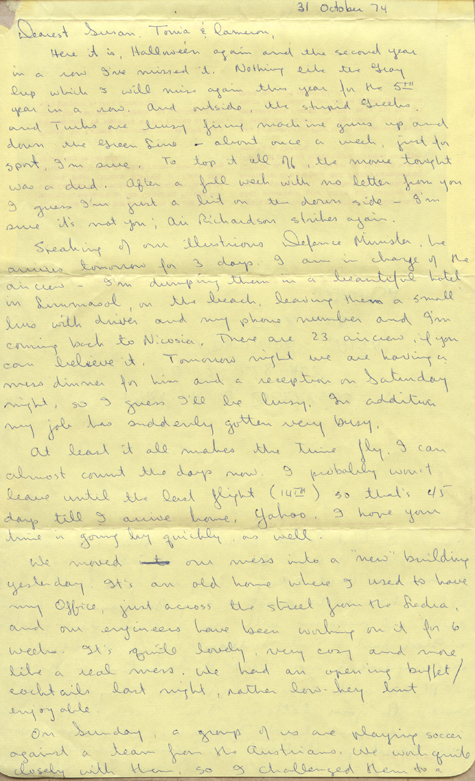 31 October 74
Dearest Susan, Tonia & Cameron,
Here it is, Halloween again and the second year
in a row I've missed it. Nothing like the Gray
Cup which I will miss again this year for the 5TH
year in a row. And outside, the stupid Greeks
and Turks are busy firing machine guns up and
down the Green Line - about once a week, just for
sport, I'm sure. To top it all off, the movie tonight
was a dud. After a full week with no letter from you
I guess I'm just a bit on the down side - I'm
sure it's not you; Air Richardson strikes again.
Speaking of our illustrious Defence Minister, he
arrives tomorrow for 3 days. I am in charge of the
aircrew - I'm dumping them in a beautiful hotel
in Limmasol, on the beach, leaving them a small
bus with driver and my phone number and I'm
coming back to Nicosia. There are 23 aircrew, if you
can believe it. Tomorrow night we are having a
mess dinner for him and a reception on Saturday
night, so I guess I'll be busy. In addition
my job has suddenly gotten very busy.
At least it all makes the time fly. I can
almost count the days now. I probably won't
leave until the last flight (14TH) so that's 45
days till I arrive home. Yahoo. I hope your
time is going by quickly, as well.
We moved our mess into a "new" building
yesterday. It's an old home where I used to have
my office, just across the street from the Ledra,
and our engineers have been working on it for 6
weeks. It's quite lovely, very cosy and more
like a real mess. We had an opening buffet/
cocktails last night, rather low-key but
enjoyable
On Sunday, a group of us are playing soccer
against a team from the Austrians. We work quite
closely with them, so I challenged them to a